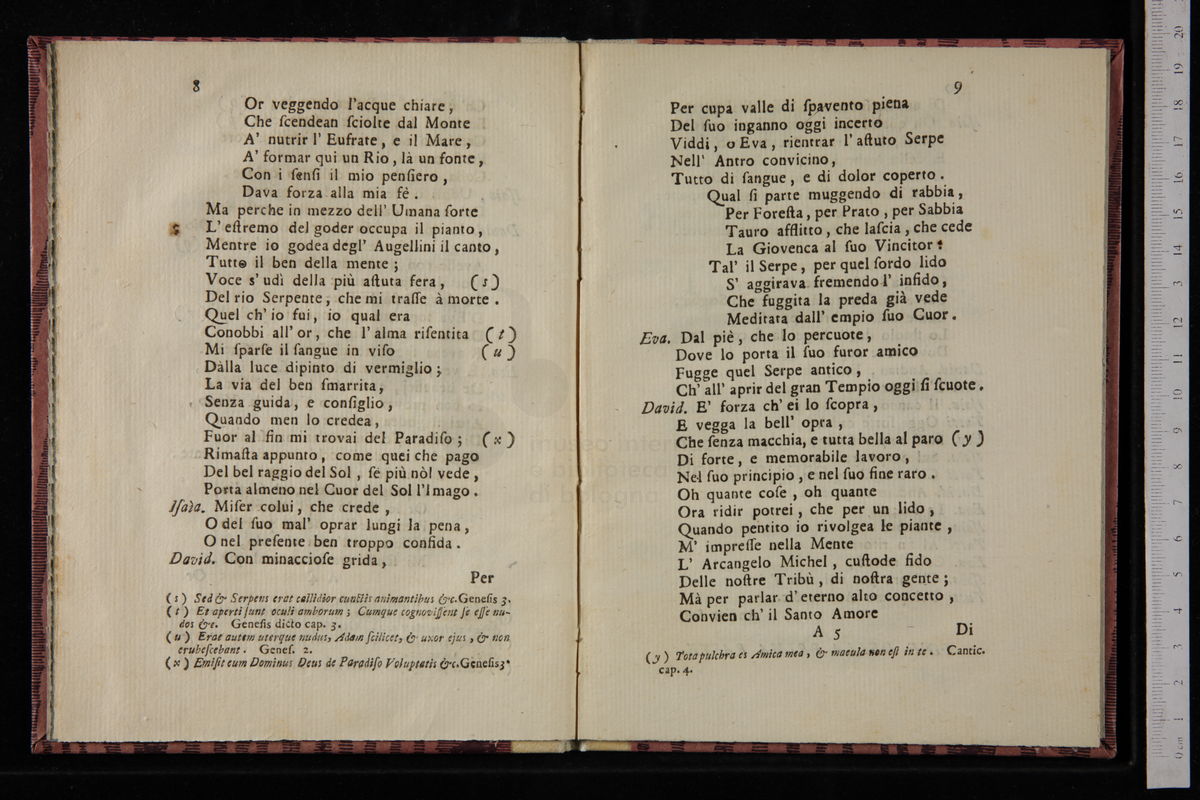 8
Or veggendo l'acque chiare,
Che ſcendean ſciolte dal Monte
A' nutrir l' Eufrate, e il Mare,
A' formar qui un Rio, là un fonte,
Con i ſenſi il mio penſiero,
Dava forza alla mia fè.
Ma perche in mezzo dell' Umana ſorte
L' eſtremo del goder occupa il pianto,
Mentre io godea degl' Augellini il canto,
Tutto il ben della mente;
Voce s' udì della più aſtuta fera, (s)
Del rio Serpente, che mi traſſe à morte.
Quel ch' io fui, io qual era
Conobbi all' or, che l' alma riſentita (t)
Mi ſparſe il ſangue in viſo (u)
Dalla luce dipinto di vermiglio;
La via del ben ſmarrita,
Senza guida, e conſiglio,
Quando men lo credea,
Fuor al fin mi trovai del Paradiſo; (x)
Rimaſta appunto, come quei che pago
Del bel raggio del Sol, ſé più nòl vede,
Porta almeno nel Cuor del Sol l'Imago.
Iſaìa. Miſer colui, che crede,
O del ſuo mal' oprar lungi la pena,
O nel preſente ben troppo confida.
David. Con minaccioſe grida,
Per
(s) Sed & Serpens erat callidior cunctis animantibus &c. Geneſis 3.
(t) Et aperti ſunt oculi amborum; Cumque cognoviſſent ſe eſſe nu-
dos &c. Geneſis dicto cap. 3.
(u) Erat autem uterque nudus, Adam ſcilicet, & uxor ejus, & non
erubeſcebant. Geneſ. 2.
(x) Emiſit eum Dominus Deus de Paradiſo Voluptatis &c. Geneſis 3.
9
Per cupa valle di ſpavento piena
Del ſuo inganno oggi incerto
Viddi, o Eva, rientrar l' aſtuto Serpe
Nell' Antro convicino,
Tutto di ſangue, e di dolor coperto.
Qual ſi parte muggendo di rabbia,
Per Foreſta, per Prato, per Sabbia
Tauro afflitto, che laſcia, che cede
La Giovenca al ſuo Vincitor:
Tal' il Serpe, per quel ſordo lido
S' aggirava fremendo l' infido,
Che fuggita la preda già vede
Meditata dall' empio ſuo Cuor.
Eva. Dal piè, che lo percuote,
Dove lo porta il ſuo furor amico
Fugge quel Serpe antico,
Ch' all' aprir del gran Tempio oggi ſi ſcuote.
David. E' forza ch' ei lo ſcopra,
E vegga la bell' opra,
Che ſenza macchia, e tutta bella al paro (y)
Di forte, e memorabile lavoro,
Nel ſuo principio, e nel ſuo fine raro.
Oh quante coſe, oh quante
Ora ridir potrei, che per un lido,
Quando pentito io rivolgea le piante,
M' impreſſe nella Mente
L' Arcangelo Michel, cuſtode fido
Delle noſtre Tribù, di noſtra gente;
Mà per parlar d' eterno alto concetto,
Convien ch' il Santo Amore
A 5 Di
(y) Tota pulchra es Amica mea, & macula non eſt in te. Cantic.
cap. 4.